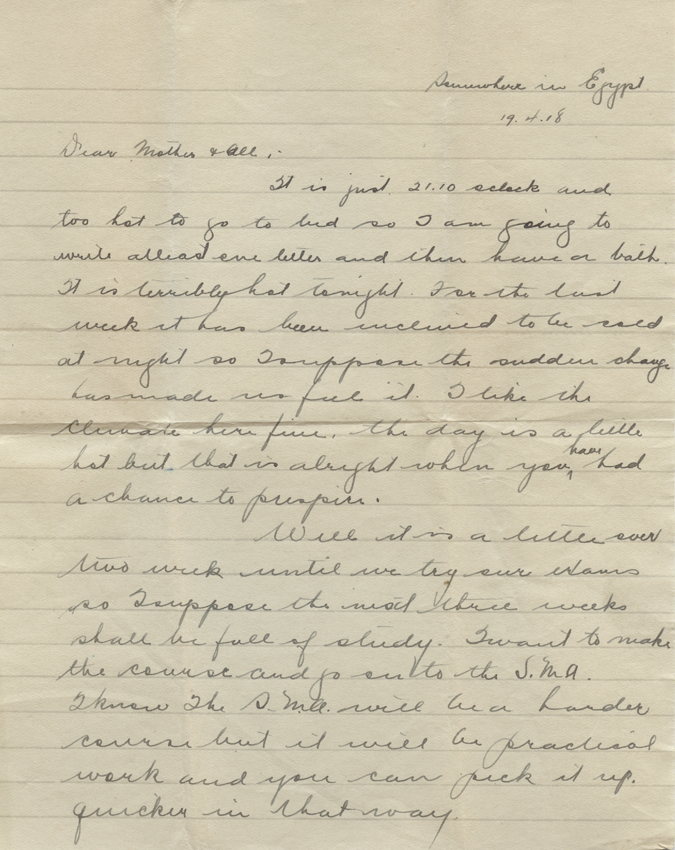 Somewhere in Egypt
19.4.18
Dear Mother & All ;-
It is just 21.10 oclock and
too hot to go to bed so I am going to
write atleast one letter and then have a bath.
It is terribly hot tonight. For the last
week it has been inclined to be cold
at night so I suppose the sudden change
has made us feel it. I like the
climate here fine. the day is a little
hot but that is alright when you have had
a chance to prespire.
Well it is a little over
two week until we try our exams
so I suppose the next three weeks
shall be full of study. I want to make
the course and go on to the S.M.A.
I know The S.M.A. will be a harder
course but it will be practical
work and you can pick it up.
quicker in that way.